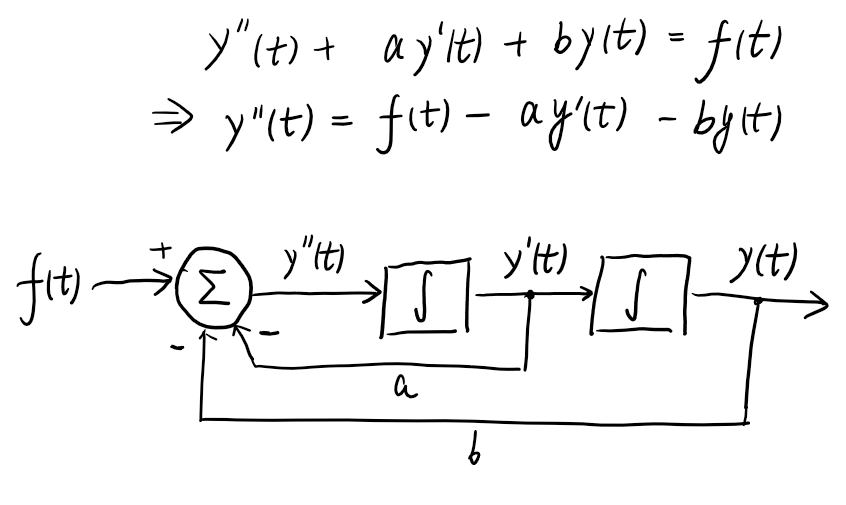 y''(t) + ay'(t) + by(t) = f(t)
⇒ y''(t) = f(t) - ay'(t) - by(t)
f(t) + Σ y''(t) ∫ y'(t) ∫ y(t)
- -
a
b